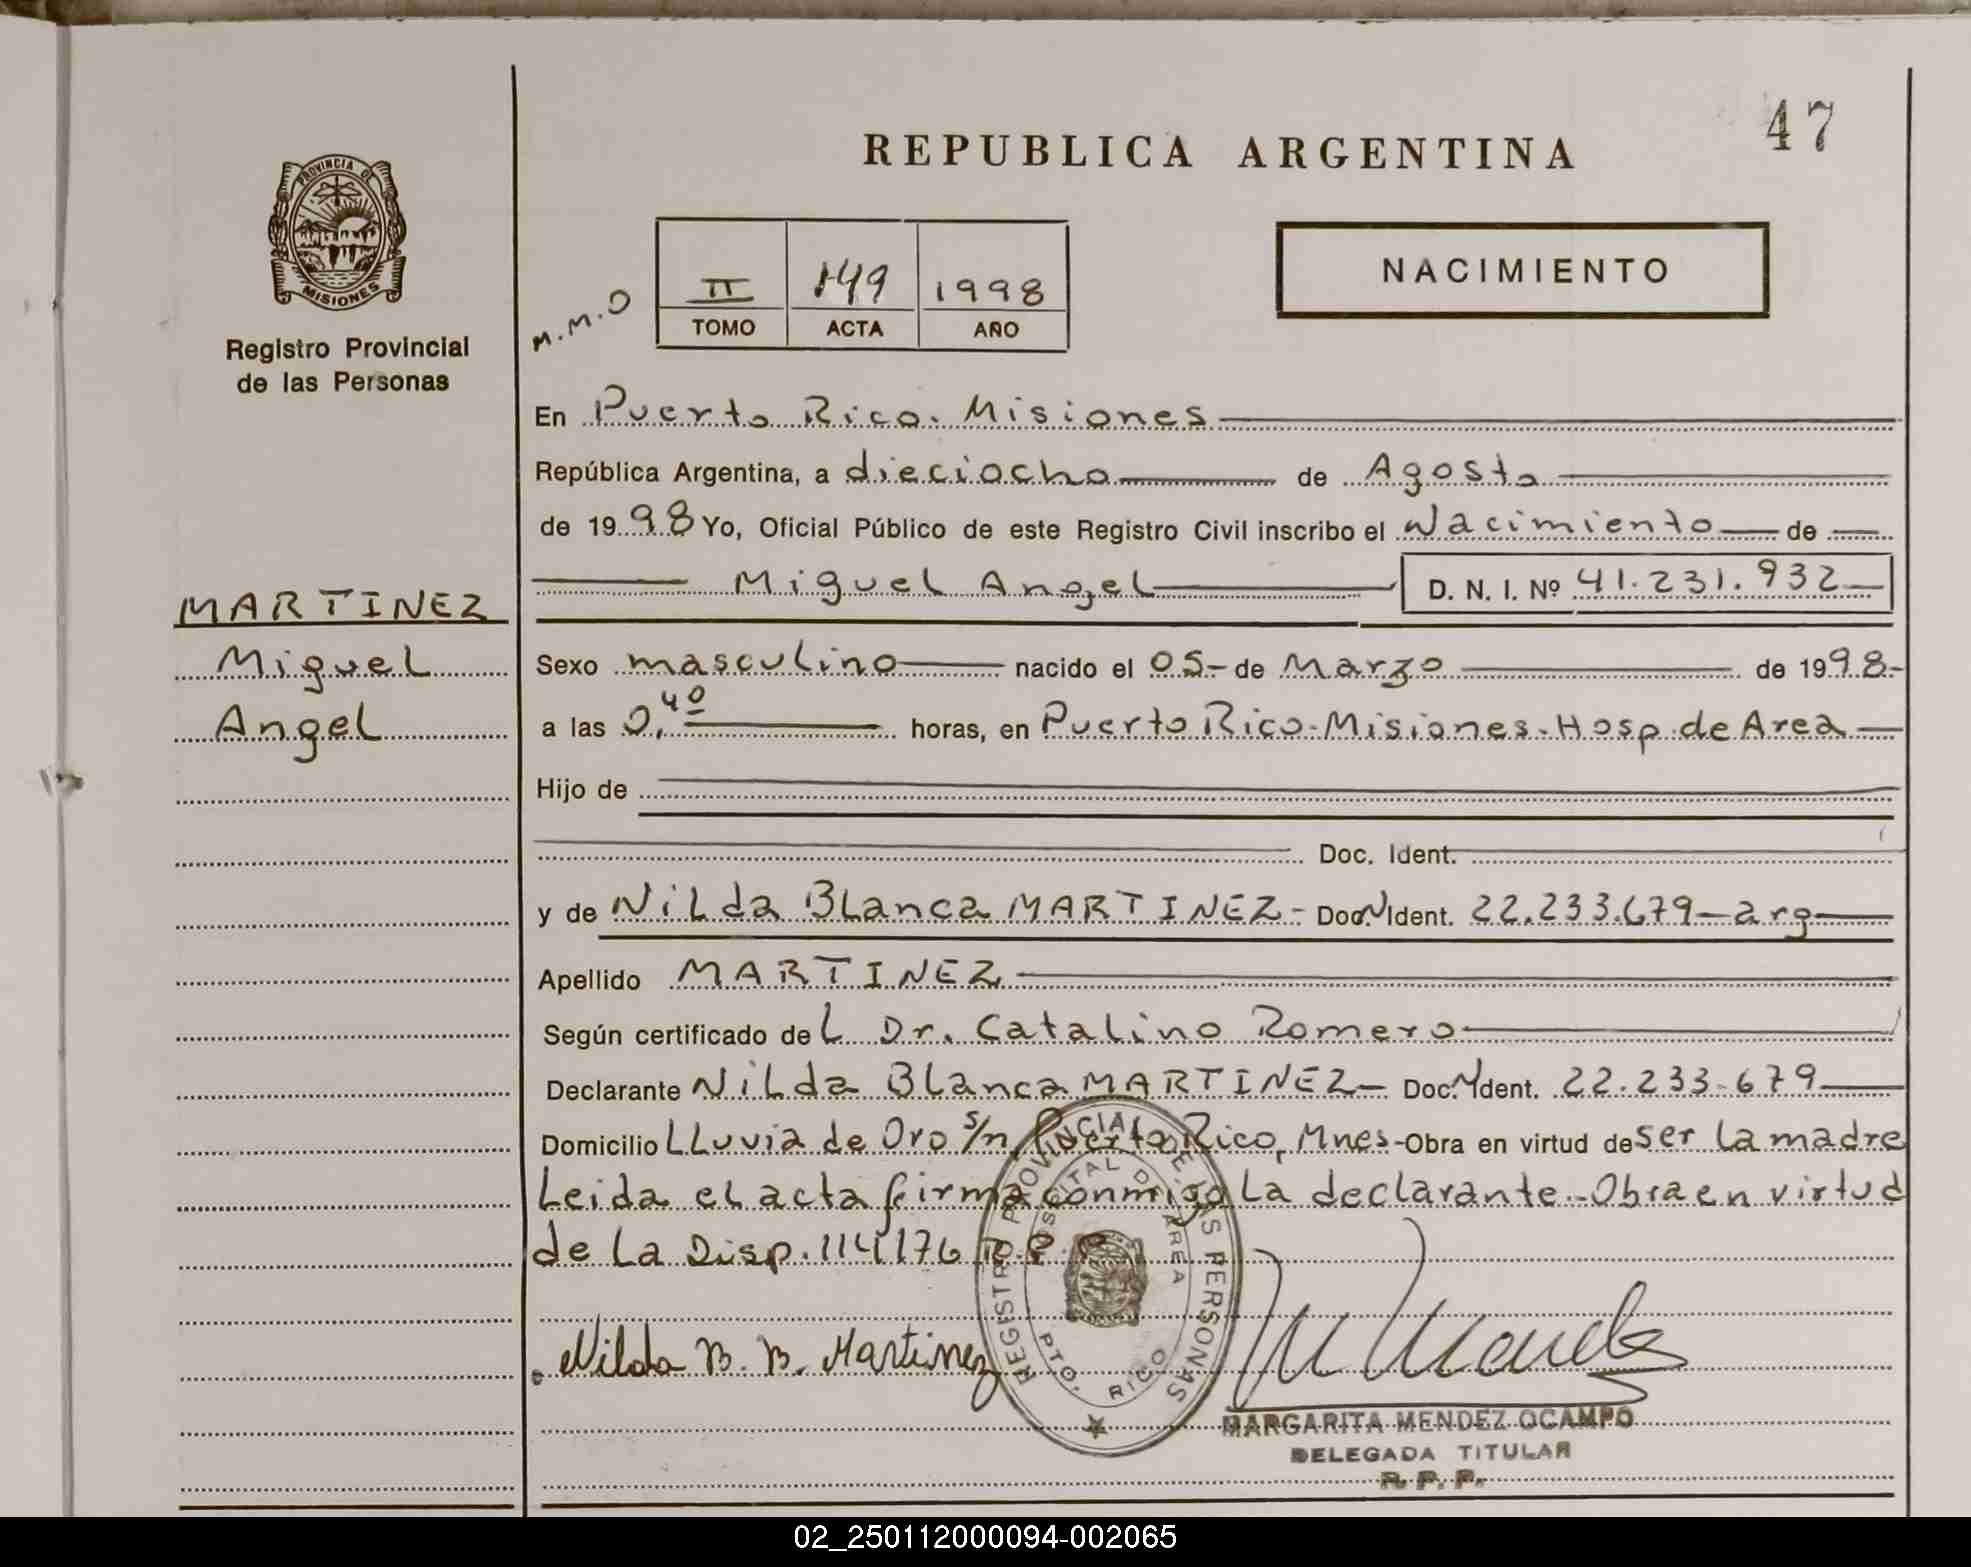 47
REPUBLICA ARGENTINA
PROVINCIA DE
MISIONES
Registro Provincial
de las Personas
M.M.O
II 149 1998
TOMO ACTA AÑO
NACIMIENTO
En Puerto Rico. Misiones
República Argentina, a dieciocho de Agosto
de 1998 Yo, Oficial Público de este Registro Civil inscribo el Nacimiento de
Miguel Angel D. N. I. Nº 41.231.932
MARTINEZ
Miguel
Angel
Sexo masculino nacido el 05- de Marzo de 1998-
a las 0,40 horas, en Puerto Rico-Misiones-Hosp. de Area
Hijo de
Doc. Ident.
y de Nilda Blanca MARTINEZ- Doc.N Ident. 22.233.679-arg
Apellido MARTINEZ
Según certificado del Dr. Catalino Romero
Declarante Nilda Blanca MARTINEZ- Doc.N Ident. 22.233.679
Domicilio LLuvia de Oro s/n Puerto Rico, Mnes-Obra en virtud de ser la madre
Leida el acta firma conmigo la declarante.-Obra en virtud
de la Disp. 114/76
REGISTRO PROVINCIAL DE LAS PERSONAS
HOSPITAL DE AREA
PTO. RICO
Nilda B. B. Martinez
MARGARITA MENDEZ OCAMPO
DELEGADA TITULAR
R. P. P.
02_250112000094-002065